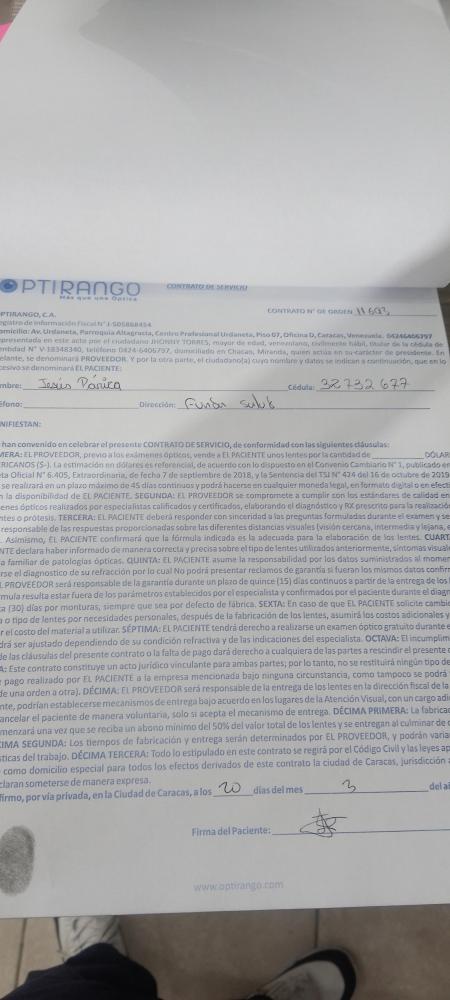 OPTIRANGO
Más que una Óptica
CONTRATO DE SERVICIO
PTIRANGO, C.A.
CONTRATO N° DE ORDEN 11693
egistro de Información Fiscal N° J-505868454
omicilio: Av. Urdaneta, Parroquia Altagracia, Centro Profesional Urdaneta, Piso 07, Oficina D, Caracas, Venezuela. 04246406797
presentada en este acto por el ciudadano JHONNY TORRES, mayor de edad, venezolano, civilmente hábil, titular de la cédula de
entidad N° V-18348340, teléfono 0424-6406797, domiciliado en Chacao, Miranda, quien actúa en su carácter de presidente. En
elante, se denominará PROVEEDOR. Y por la otra parte, el ciudadano(a) cuyo nombre y datos se indican a continuación, que en lo
cesivo se denominará EL PACIENTE:
mbre: Jesús Cédula: 32732677
éfono: Dirección:
NIFIESTAN:
han convenido en celebrar el presente CONTRATO DE SERVICIO, de conformidad con los siguientes cláusulas:
MERA: EL PROVEEDOR, previo a los exámenes ópticos, vende a EL PACIENTE unos lentes por la cantidad de DÓLAR
RICANOS ($-). La estimación en dólares es referencial, de acuerdo con lo dispuesto en el Convenio Cambiario N° 1, publicado en
eta Oficial N° 6.405, Extraordinaria, de fecha 7 de septiembre de 2018, y la Sentencia del TSJ N° 424 del 16 de octubre de 2019
se realizará en un plazo máximo de 45 días continuos y podrá hacerse en cualquier moneda legal, en formato digital o en efecti
n la disponibilidad de EL PACIENTE. SEGUNDA: EL PROVEEDOR se compromete a cumplir con los estándares de calidad en
enes ópticos realizados por especialistas calificados y certificados, elaborando el diagnóstico y RX prescrito para la realizació
ntes o prótesis. TERCERA: EL PACIENTE deberá responder con sinceridad a las preguntas formuladas durante el examen y se
responsable de las respuestas proporcionadas sobre las diferentes distancias visuales (visión cercana, intermedia y lejana, e
. Asimismo, EL PACIENTE confirmará que la fórmula indicada es la adecuada para la elaboración de los lentes. CUART
NTE declara haber informado de manera correcta y precisa sobre el tipo de lentes utilizados anteriormente, síntomas visual
a familiar de patologías ópticas. QUINTA: EL PACIENTE asume la responsabilidad por los datos suministrados al momen
rse el diagnostico de su refracción por lo cual No podrá presentar reclamos de garantía si fueran los mismos datos confirm
L PROVEEDOR será responsable de la garantía durante un plazo de quince (15) días continuos a partir de la entrega de los
rmula resulta estar fuera de los parámetros establecidos por el especialista y confirmados por el paciente durante el diagn
ta (30) días por monturas, siempre que sea por defecto de fábrica. SEXTA: En caso de que EL PACIENTE solicite cambi
a o tipo de lentes por necesidades personales, después de la fabricación de los lentes, asumirá los costos adicionales y
r el costo del material a utilizar. SÉPTIMA: EL PACIENTE tendrá derecho a realizarse un examen óptico gratuito durante e
drá ser ajustado dependiendo de su condición refractiva y de las indicaciones del especialista. OCTAVA: El incumplim
de las cláusulas del presente contrato o la falta de pago dará derecho a cualquiera de las partes a rescindir el presente
A: Este contrato constituye un acto jurídico vinculante para ambas partes; por lo tanto, no se restituirá ningún tipo de
pago realizado por EL PACIENTE a la empresa mencionada bajo ninguna circunstancia, como tampoco se podrá
de una orden a otra). DÉCIMA: EL PROVEEDOR será responsable de la entrega de los lentes en la dirección fiscal de la
nte, podrían establecerse mecanismos de entrega bajo acuerdo en los lugares de la Atención Visual, con un cargo adi
ancelar el paciente de manera voluntaria, solo si acepta el mecanismo de entrega. DÉCIMA PRIMERA: La fabricac
menzará una vez que se reciba un abono mínimo del 50% del valor total de los lentes y se entregan al culminar de c
IMA SEGUNDA: Los tiempos de fabricación y entrega serán determinados por EL PROVEEDOR, y podrán varia
sticas del trabajo. DÉCIMA TERCERA: Todo lo estipulado en este contrato se regirá por el Código Civil y las leyes ap
como domicilio especial para todos los efectos derivados de este contrato la ciudad de Caracas, jurisdicción a
claran someterse de manera expresa.
firmo, por vía privada, en la Ciudad de Caracas, a los 20 días del mes 3 del añ
Firma del Paciente:
www.optirango.com